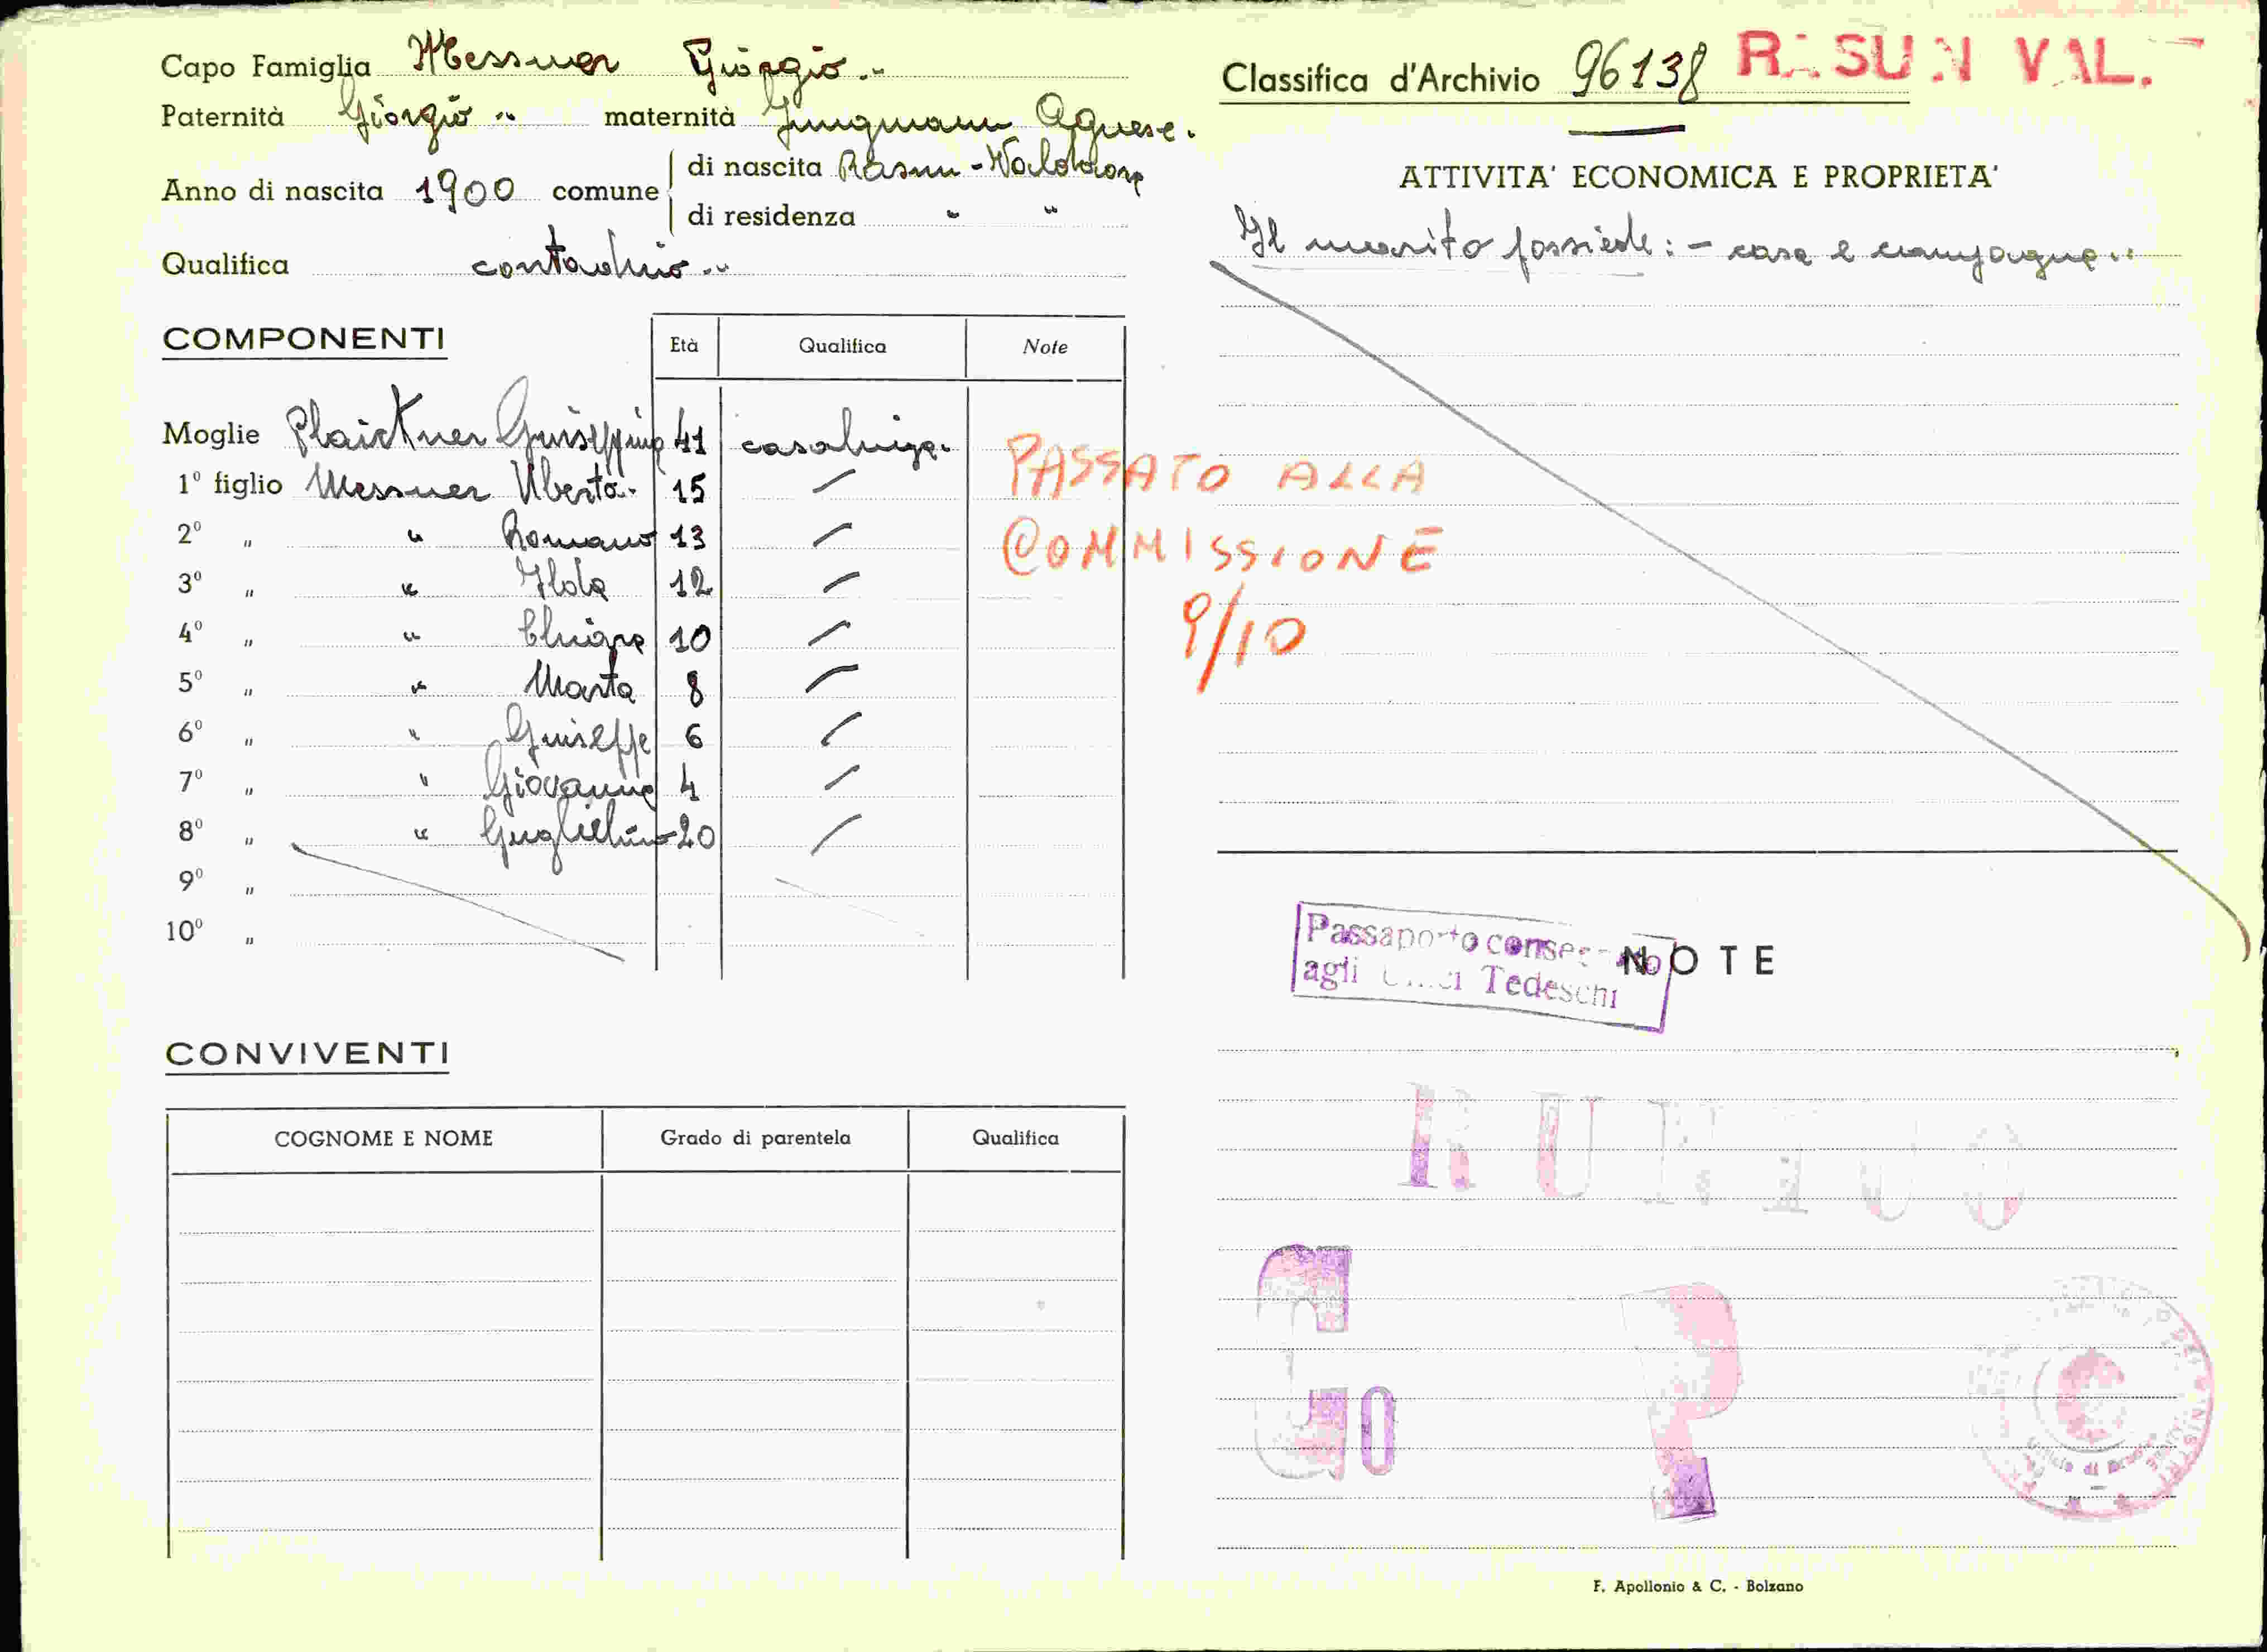 Capo Famiglia Messner Giorgio..
Paternità Giorgio .. maternità Jungmann Agnese.
Anno di nascita 1900 comune di nascita Rasun-Valdaora
di residenza " "
Qualifica contadino..
COMPONENTI
Età Qualifica Note
Moglie Plaickner Giuseppina 41 casalinga.
1º figlio Messner Uberto. 15 /
2º " " Romano 13 /
3º " " Ilda 12 /
4º " " Chiara 10 /
5º " " Marta 8 /
6º " " Giuseppe 6 /
7º " " Giovanna 4 /
8º " " Guglielmo 20 /
9º "
10º "
PASSATO ALLA
COMMISSIONE
9/10
CONVIVENTI
COGNOME E NOME Grado di parentela Qualifica
Classifica d'Archivio 96138 RASUN VAL.
ATTIVITA' ECONOMICA E PROPRIETA'
Il marito possiede: - casa e campagna..
Passaporto consegnato
agli Uffici Tedeschi
NOTE
G0
F. Apollonio & C. - Bolzano